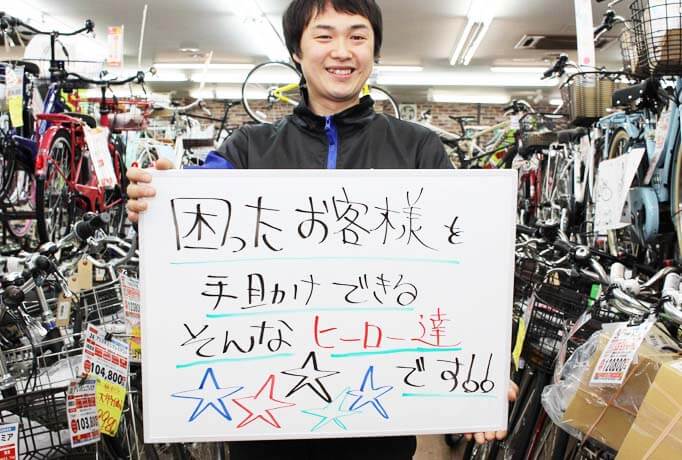 困ったお客様を
手助けできる
そんなヒーロー達
です!!
104,800